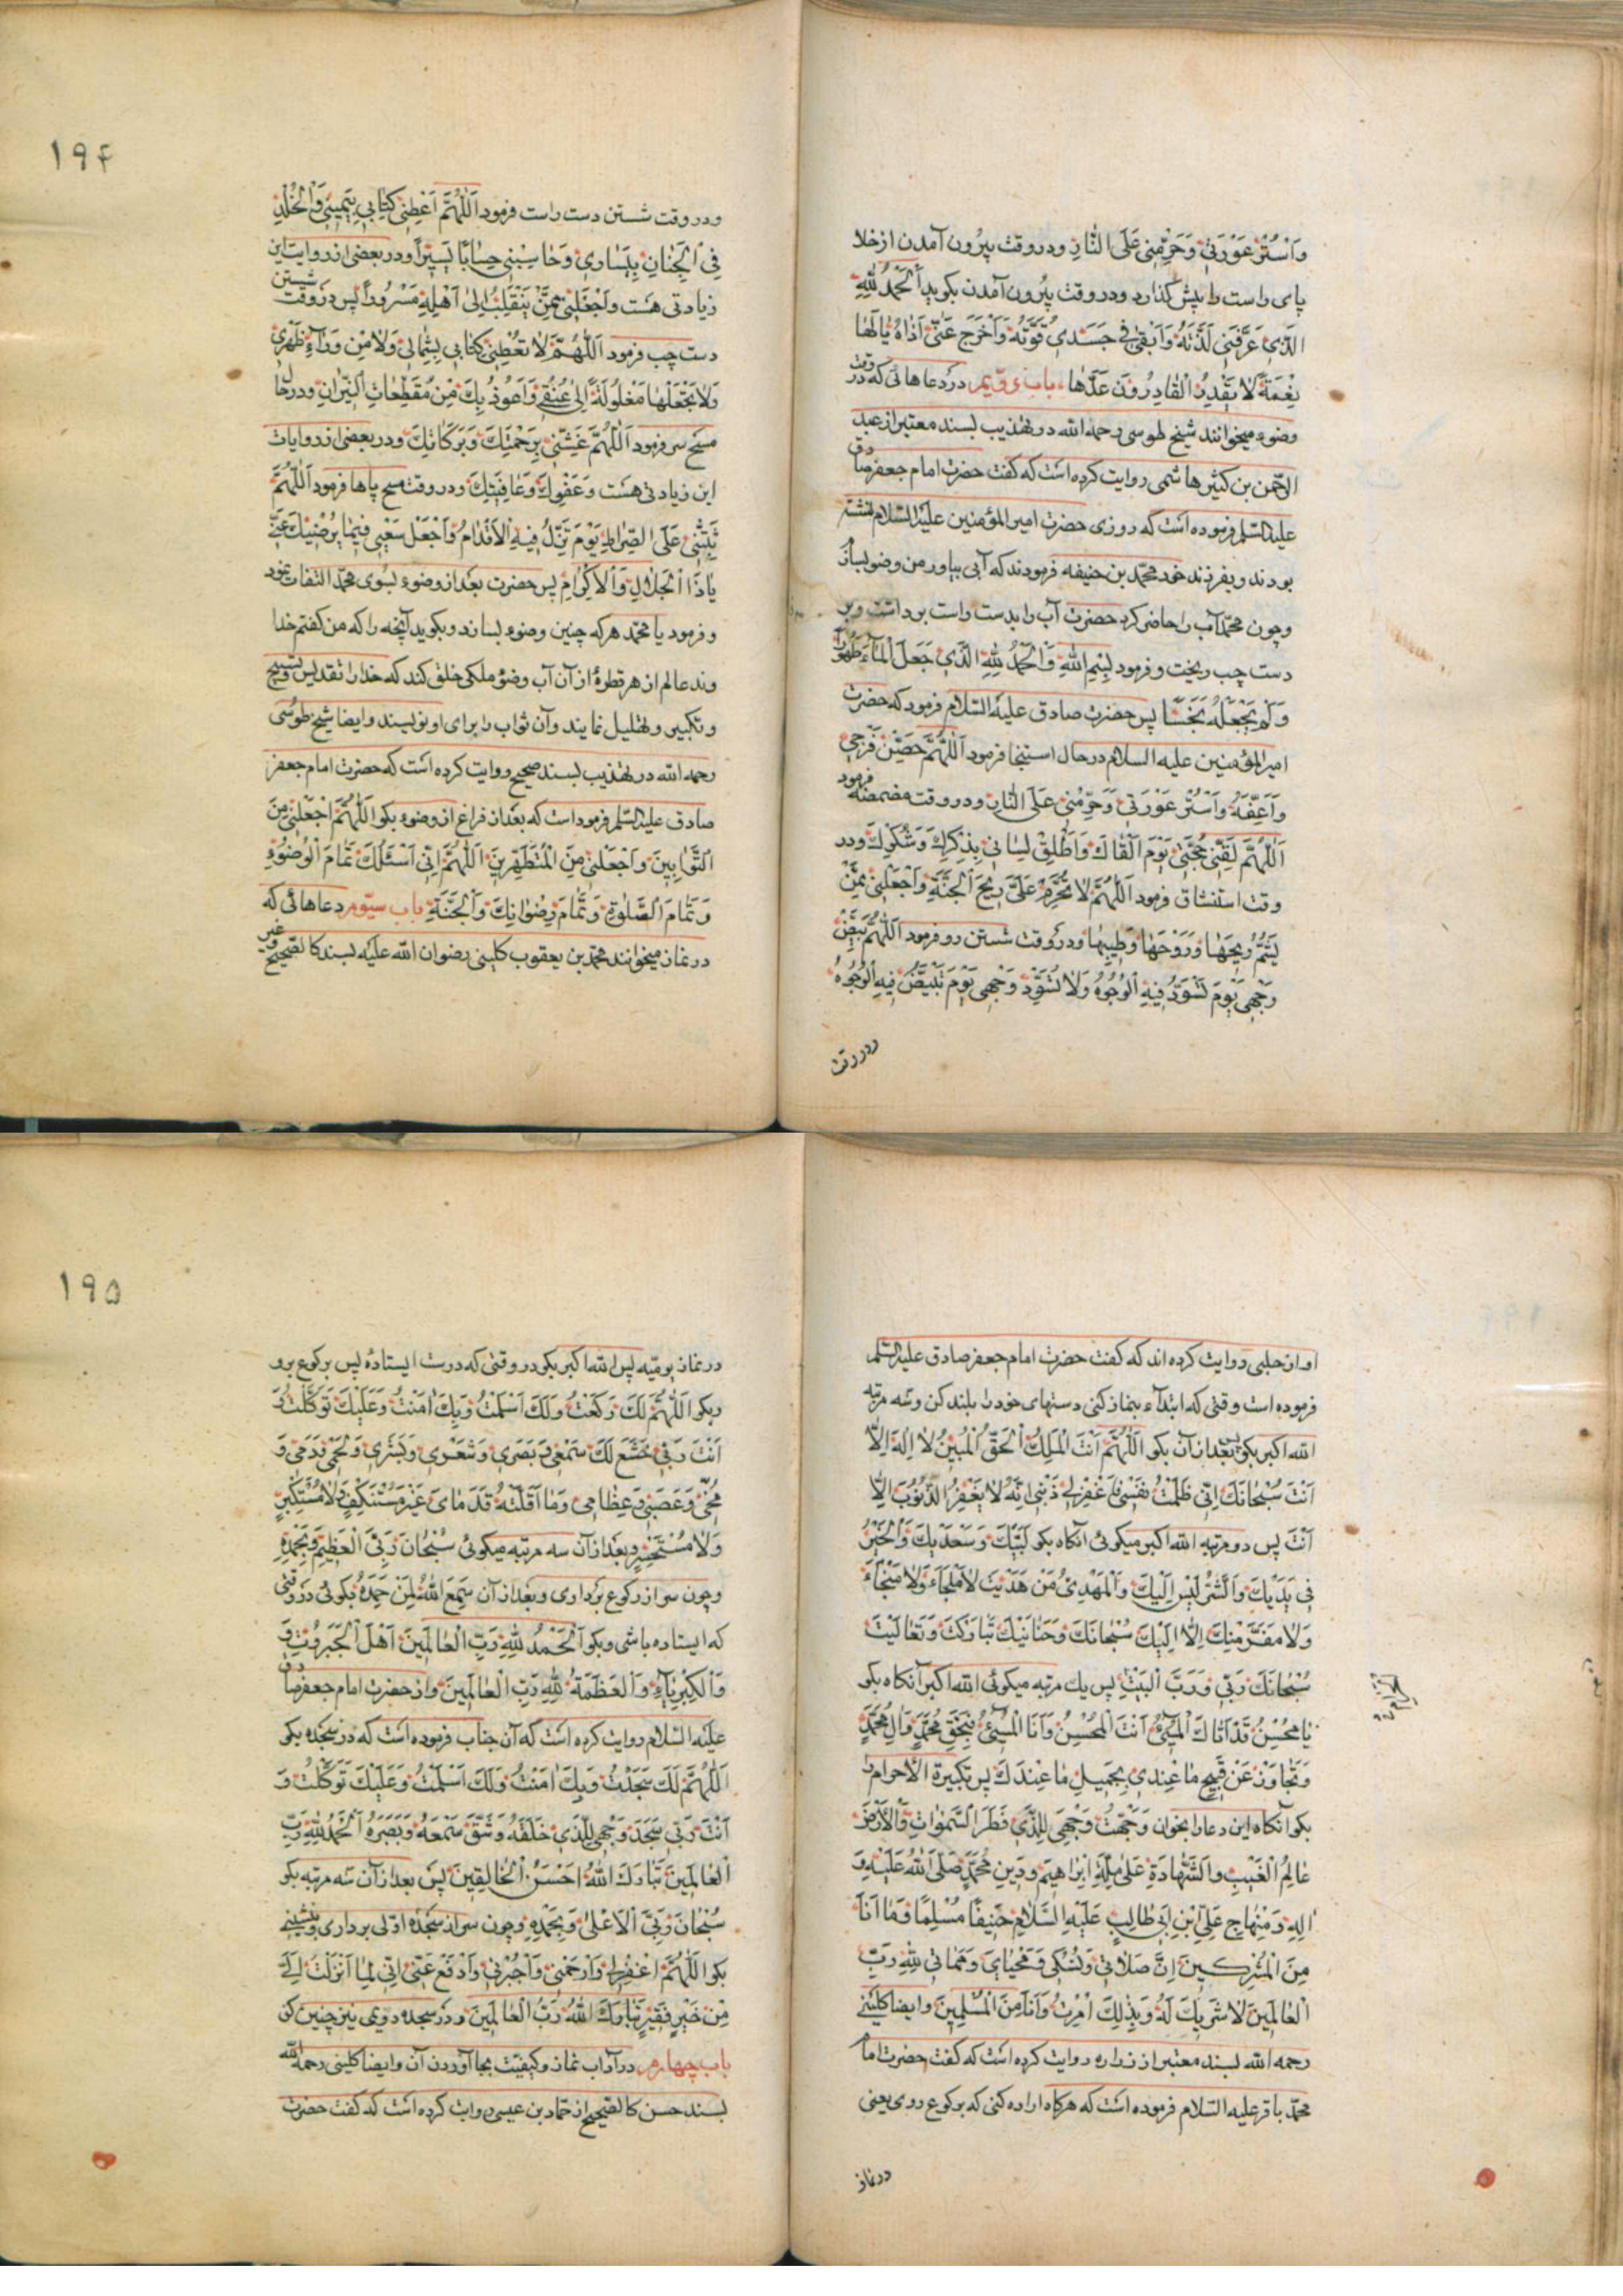 وَاسْتُرْ عَوْرَتِي وَحَرِّمْنِي عَلَى النَّارِ ودر وقت بیرون آمدن از خلا
پای راست را پیش گذارد ودر وقت بیرون آمدن بکوید اَلْحَمْدُ لِلّٰهِ
الَّذِي عَرَّفَنِي لَذَّتَهُ وَاَبْقٰى فِي جَسَدِي قُوَّتَهُ وَاَخْرَجَ عَنِّي اَذَاهُ يَا لَهَا
نِعْمَةً لَا يَقْدِرُ الْقَادِرُونَ قَدْرَهَا باب دویم در دعاهائی که در وقت
وضوء میخوانند شیخ طوسی رحمه الله در تهذیب بسند معتبر از عبد
الرحمن بن کثیر هاشمی روایت کرده است که کفت حضرت امام جعفر صادق
علیه السلم فرموده است که روزی حضرت امیر المؤمنین علیه السلام نشسته
بودند وبفرزند خود محمد بن حنیفه فرمودند که آبی بیاور من وضو بسازم
وچون محمد آب را حاضر کرد حضرت آب را بدست راست برداشت وبر
دست چب ریخت وفرمود بِسْمِ اللّٰهِ وَالْحَمْدُ لِلّٰهِ الَّذِي جَعَلَ الْمَاءَ طَهُورًا
وَلَمْ يَجْعَلْهُ نَجَسًا پس حضرت صادق علیه السلام فرمود که حضرت
امیر المؤمنین علیه السلام در حال استنجا فرمود اَللّٰهُمَّ حَصِّنْ فَرْجِي
وَاَعِفَّهُ وَاسْتُرْ عَوْرَتِي وَحَرِّمْنِي عَلَى النَّارِ ودر وقت مضمضه فرمود
اَللّٰهُمَّ لَقِّنِي حُجَّتِي يَوْمَ اَلْقَاكَ وَاَطْلِقْ لِسَانِي بِذِكْرِكَ وَشُكْرِكَ ودر
وقت استنشاق فرمود اَللّٰهُمَّ لَا تُحَرِّمْ عَلَيَّ رِيحَ الْجَنَّةِ وَاجْعَلْنِي مِمَّنْ
يَشَمُّ رِيحَهَا وَرَوْحَهَا وَطِيبَهَا ودر وقت شستن رو فرمود اَللّٰهُمَّ بَيِّضْ
وَجْهِي يَوْمَ تَسْوَدُّ فِيهِ الْوُجُوهُ وَلَا تُسَوِّدْ وَجْهِي يَوْمَ تَبْيَضُّ فِيهِ الْوُجُوهُ
ودر وقت
۱۹۴
ودر وقت شستن دست راست فرمود اَللّٰهُمَّ اَعْطِنِي كِتَابِي بِيَمِينِي وَالْخُلْدَ
فِي الْجِنَانِ بِيَسَارِي وَحَاسِبْنِي حِسَابًا يَسِيرًا ودر بعضی از روایت این
زیادتی هست وَاجْعَلْنِي مِمَّنْ يَنْقَلِبُ اِلٰى اَهْلِهِ مَسْرُورًا پس در وقت شستن
دست چب فرمود اَللّٰهُمَّ لَا تُعْطِنِي كِتَابِي بِشِمَالِي وَلَا مِنْ وَرَاءِ ظَهْرِي
وَلَا تَجْعَلْهَا مَغْلُولَةً اِلٰى عُنُقِي وَاَعُوذُ بِكَ مِنْ مُقَطَّعَاتِ النِّيرَانِ ودر حال
مسح سر فرمود اَللّٰهُمَّ غَشِّنِي بِرَحْمَتِكَ وَبَرَكَاتِكَ ودر بعضی از روایات
این زیادتی هست وَعَفْوِكَ وَعَافِيَتِكَ ودر وقت مسح پاها فرمود اَللّٰهُمَّ
ثَبِّتْنِي عَلَى الصِّرَاطِ يَوْمَ تَزِلُّ فِيهِ الْاَقْدَامُ وَاجْعَلْ سَعْيِي فِيمَا يُرْضِيكَ عَنِّي
يَا ذَا الْجَلَالِ وَالْاِكْرَامِ پس حضرت بعد از وضوء بسوی محمد التفات نمود
وفرمود یا محمد هر که چنین وضوء بسازد وبکوید آنچه را که من کفتم خدا
وند عالم از هر قطرهٔ از آن آب وضو ملکی خلق کند که خدا را تقدیس وتسبیح
وتکبیر وتهلیل نمایند وآن ثواب را برای او نویسند وایضا شیخ طوسی
رحمه الله در تهذیب بسند صحیح روایت کرده است که حضرت امام جعفر
صادق علیه السلم فرموداست که بعد از فراغ از وضوء بکو اَللّٰهُمَّ اجْعَلْنِي مِنَ
التَّوَّابِينَ وَاجْعَلْنِي مِنَ الْمُتَطَهِّرِينَ اَللّٰهُمَّ اِنِّي اَسْئَلُكَ تَمَامَ الْوُضُوءِ
وَتَمَامَ الصَّلٰوةِ وَتَمَامَ رِضْوَانِكَ وَالْجَنَّةِ باب سیوم دعاهائی که
در نماز میخوانند محمد بن یعقوب کلینی رضوان الله علیه بسند کالصحیح
او از حلبی روایت کرده اند که کفت حضرت امام جعفر صادق علیه السلم
فرموده است وقتی که ابتداء بنماز کنی دستهای خود را بلند کن وسه مرتبه
الله اکبر بکو بعد از آن بکو اَللّٰهُمَّ اَنْتَ الْمَلِكُ الْحَقُّ الْمُبِينُ لَا اِلٰهَ اِلَّا
اَنْتَ سُبْحَانَكَ اِنِّي ظَلَمْتُ نَفْسِي فَاغْفِرْ لِي ذَنْبِي اِنَّهُ لَا يَغْفِرُ الذُّنُوبَ اِلَّا
اَنْتَ پس دو مرتبه الله اکبر میکوئی آنکاه بکو لَبَّيْكَ وَسَعْدَيْكَ وَالْخَيْرُ
فِي يَدَيْكَ وَالشَّرُّ لَيْسَ اِلَيْكَ وَالْمَهْدِيُّ مَنْ هَدَيْتَ لَا مَلْجَاءَ وَلَا مَنْجَاءَ
وَلَا مَفَرَّ مِنْكَ اِلَّا اِلَيْكَ سُبْحَانَكَ وَحَنَانَيْكَ تَبَارَكْتَ وَتَعَالَيْتَ
سُبْحَانَكَ رَبِّي وَرَبَّ الْبَيْتِ پس یك مرتبه میکوئی الله اکبر آنکاه بکو
يَا مُحْسِنُ قَدْ اَتَاكَ الْمُسِيءُ اَنْتَ الْمُحْسِنُ وَاَنَا الْمُسِيءُ بِحَقِّ مُحَمَّدٍ وَاٰلِ مُحَمَّدٍ
وَتَجَاوَزْ عَنْ قَبِيحِ مَا عِنْدِي بِجَمِيلِ مَا عِنْدَكَ پس تکبیرة الاحرام را
بکو آنکاه این دعا را بخوان وَجَّهْتُ وَجْهِيَ لِلَّذِي فَطَرَ السَّمٰوَاتِ وَالْاَرْضَ
عَالِمُ الْغَيْبِ وَالشَّهَادَةِ عَلٰى مِلَّةِ اِبْرَاهِيمَ وَدِينِ مُحَمَّدٍ صَلَّى اللّٰهُ عَلَيْهِ وَ
اٰلِهِ وَمِنْهَاجِ عَلِيِّ بْنِ اَبِي طَالِبٍ عَلَيْهِ السَّلَامُ حَنِيفًا مُسْلِمًا وَمَا اَنَا
مِنَ الْمُشْرِكِينَ اِنَّ صَلَاتِي وَنُسُكِي وَمَحْيَايَ وَمَمَاتِي لِلّٰهِ رَبِّ
الْعَالَمِينَ لَا شَرِيكَ لَهُ وَبِذٰلِكَ اُمِرْتُ وَاَنَا مِنَ الْمُسْلِمِينَ وایضا کلینی
رحمه الله بسند معتبر از زراره روایت کرده است که کفت حضرت امام
محمد باقر علیه السلام فرموده است که هرکاه اراده کنی که برکوع روی یعنی
در نماز
۱۹۵
در نماز یومیه پس الله اکبر بکو در وقتی که درست ایستادهٔ پس برکوع برو
وبکو اَللّٰهُمَّ لَكَ رَكَعْتُ وَلَكَ اَسْلَمْتُ وَبِكَ اٰمَنْتُ وَعَلَيْكَ تَوَكَّلْتُ وَ
اَنْتَ رَبِّي خَشَعَ لَكَ سَمْعِي وَبَصَرِي وَشَعْرِي وَبَشَرِي وَلَحْمِي وَدَمِي وَ
مُخِّي وَعَصَبِي وَعِظَامِي وَمَا اَقَلَّتْهُ قَدَمَايَ غَيْرَ مُسْتَنْكِفٍ وَلَا مُسْتَكْبِرٍ
وَلَا مُسْتَحْسِرٍ وبعد از آن سه مرتبه میکوئی سُبْحَانَ رَبِّيَ الْعَظِيمِ وَبِحَمْدِهِ
وچون سر از رکوع برداری وبعد از آن سَمِعَ اللّٰهُ لِمَنْ حَمِدَهُ بکوئی در وقتی
که ایستاده باشی وبکو اَلْحَمْدُ لِلّٰهِ رَبِّ الْعَالَمِينَ اَهْلَ الْجَبَرُوتِ وَ
وَالْكِبْرِيَاءِ وَالْعَظَمَةُ لِلّٰهِ رَبِّ الْعَالَمِينَ واز حضرت امام جعفر صادق
علیه السلام روایت کرده است که آن جناب فرموده است که در سجده بکو
اَللّٰهُمَّ لَكَ سَجَدْتُ وَبِكَ اٰمَنْتُ وَلَكَ اَسْلَمْتُ وَعَلَيْكَ تَوَكَّلْتُ وَ
اَنْتَ رَبِّي سَجَدَ وَجْهِي لِلَّذِي خَلَقَهُ وَشَقَّ سَمْعَهُ وَبَصَرَهُ اَلْحَمْدُ لِلّٰهِ رَبِّ
الْعَالَمِينَ تَبَارَكَ اللّٰهُ اَحْسَنُ الْخَالِقِينَ پس بعد از آن سه مرتبه بکو
سُبْحَانَ رَبِّيَ الْاَعْلٰى وَبِحَمْدِهِ وچون سر از سجدهٔ اولی برداری وبنشینی
بکو اَللّٰهُمَّ اغْفِرْ لِي وَارْحَمْنِي وَاجْبُرْنِي وَادْفَعْ عَنِّي اِنِّي لِمَا اَنْزَلْتَ اِلَيَّ
مِنْ خَيْرٍ فَقِيرٌ تَبَارَكَ اللّٰهُ رَبُّ الْعَالَمِينَ ودر سجده دویمی نیز چنین کن
باب چهارم در آداب نماز وکیفیت بجا آوردن آن وایضا کلینی رحمه الله
بسند حسن کالصحیح از حماد بن عیسی روایت کرده است که کفت حضرت